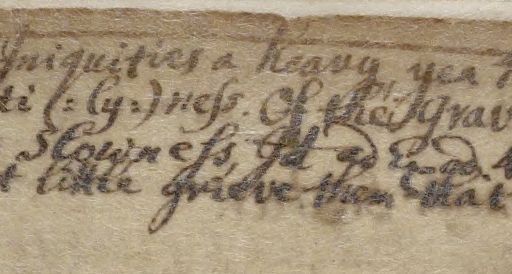 Iniquities a heavy yea
ti (:ly:) ness. Of their Grav
Slowness,
t little grieve then that